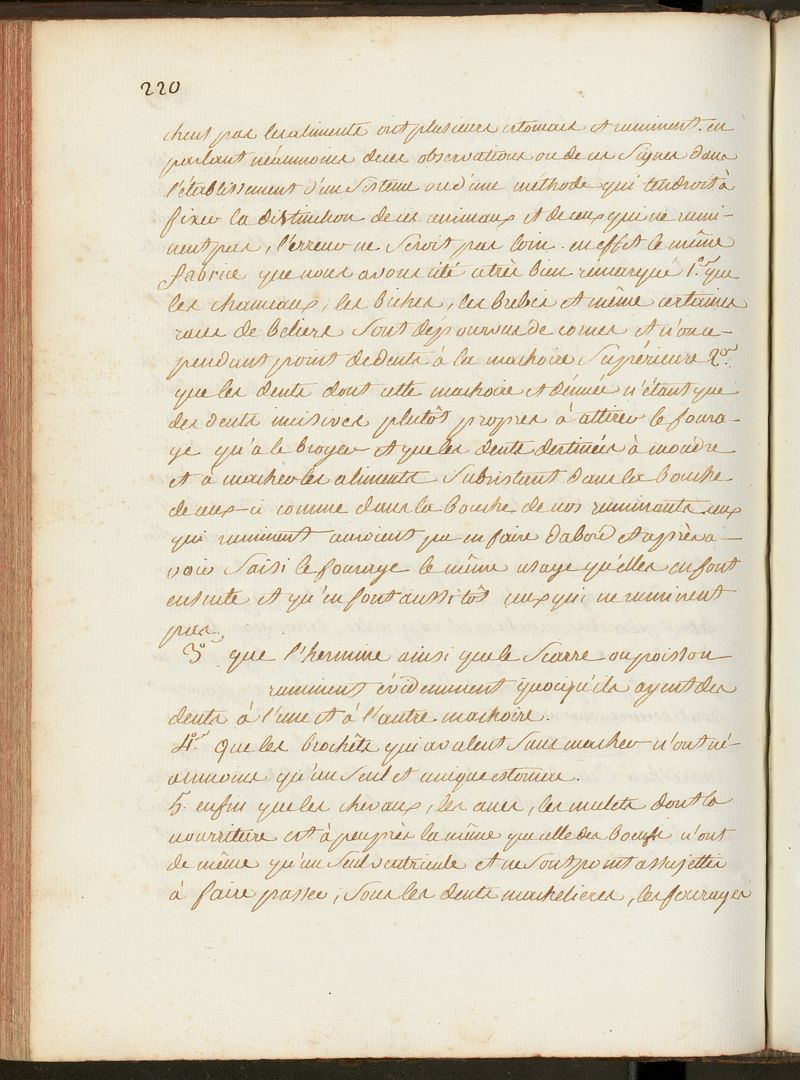 220
chent pas les alimens ont plusieurs estomacs et ruminent. en
partant néanmoins de ces observations ou de ces signes dans
l'établissement d'un sisteme ou d'une méthode qui tendroit à
fixer la distinction de ces animaux et de ceux qui ne rumi-
nent pas, l'erreur ne seroit pas loin. en effet le même
fabrice que nous avons cité a très bien remarqué 1.º que
les chameaux, les biches, les brebis et même certaines
races de béliers sont dépourvus de cornes et n'ont ce-
pendant point de dents à la machoire supérieure 2.º
que les dents dont cette machoire est dénuée n'étant que
des dents incisives plutôt propres à attirer le foura-
ge qu'a le broyer et que les dents destinées à moudre
et à macher les alimens subsistent dans la bouche
de ceux-ci comme dans la bouche de nos ruminants ceux
qui ruminent auroient pu en faire dabord et après a-
voir saisi le fourage le même usage qu'elles en font
ensuite et qu'en font aussitôt ceux qui ne ruminent
pas.
3º que l'hermine ainsi que le Scarre ou poisson
ruminent évidemment quoiqu'ils ayent des
dents à l'une et à l'autre machoire.
4.º que les brochets qui avalent sans macher n'ont né-
anmoins qu'un seul et unique estomac.
5. enfin que les chevaux, les anes, les mulets dont la
nourriture est à peu près la même que celle des boeufs n'ont
de même qu'un seul ventricule et ne sont point assujettis
à faire passer, sous les dents machelieres, les fourages